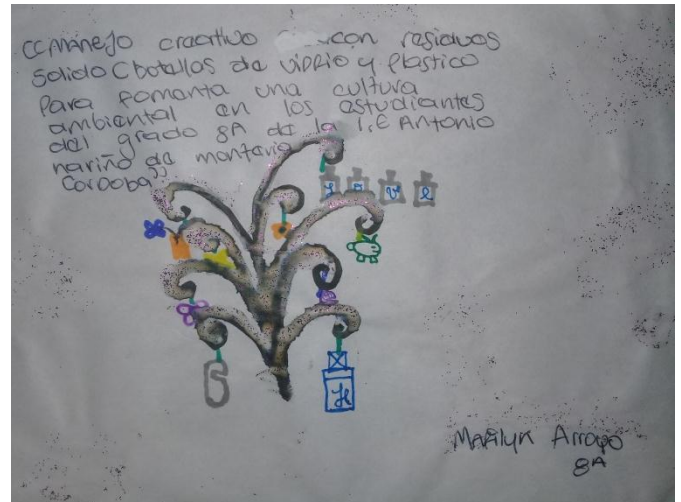 CCMANEJO creactivo con residuos
Solido C botellos de vidrio y plastico
Para fomenta una cultura
ambiental en los estudiantes
del grado 8A de la I.E Antonio
nariño de monteria
Cordoba"
L o v e
H
Marilyn Arroyo
8A